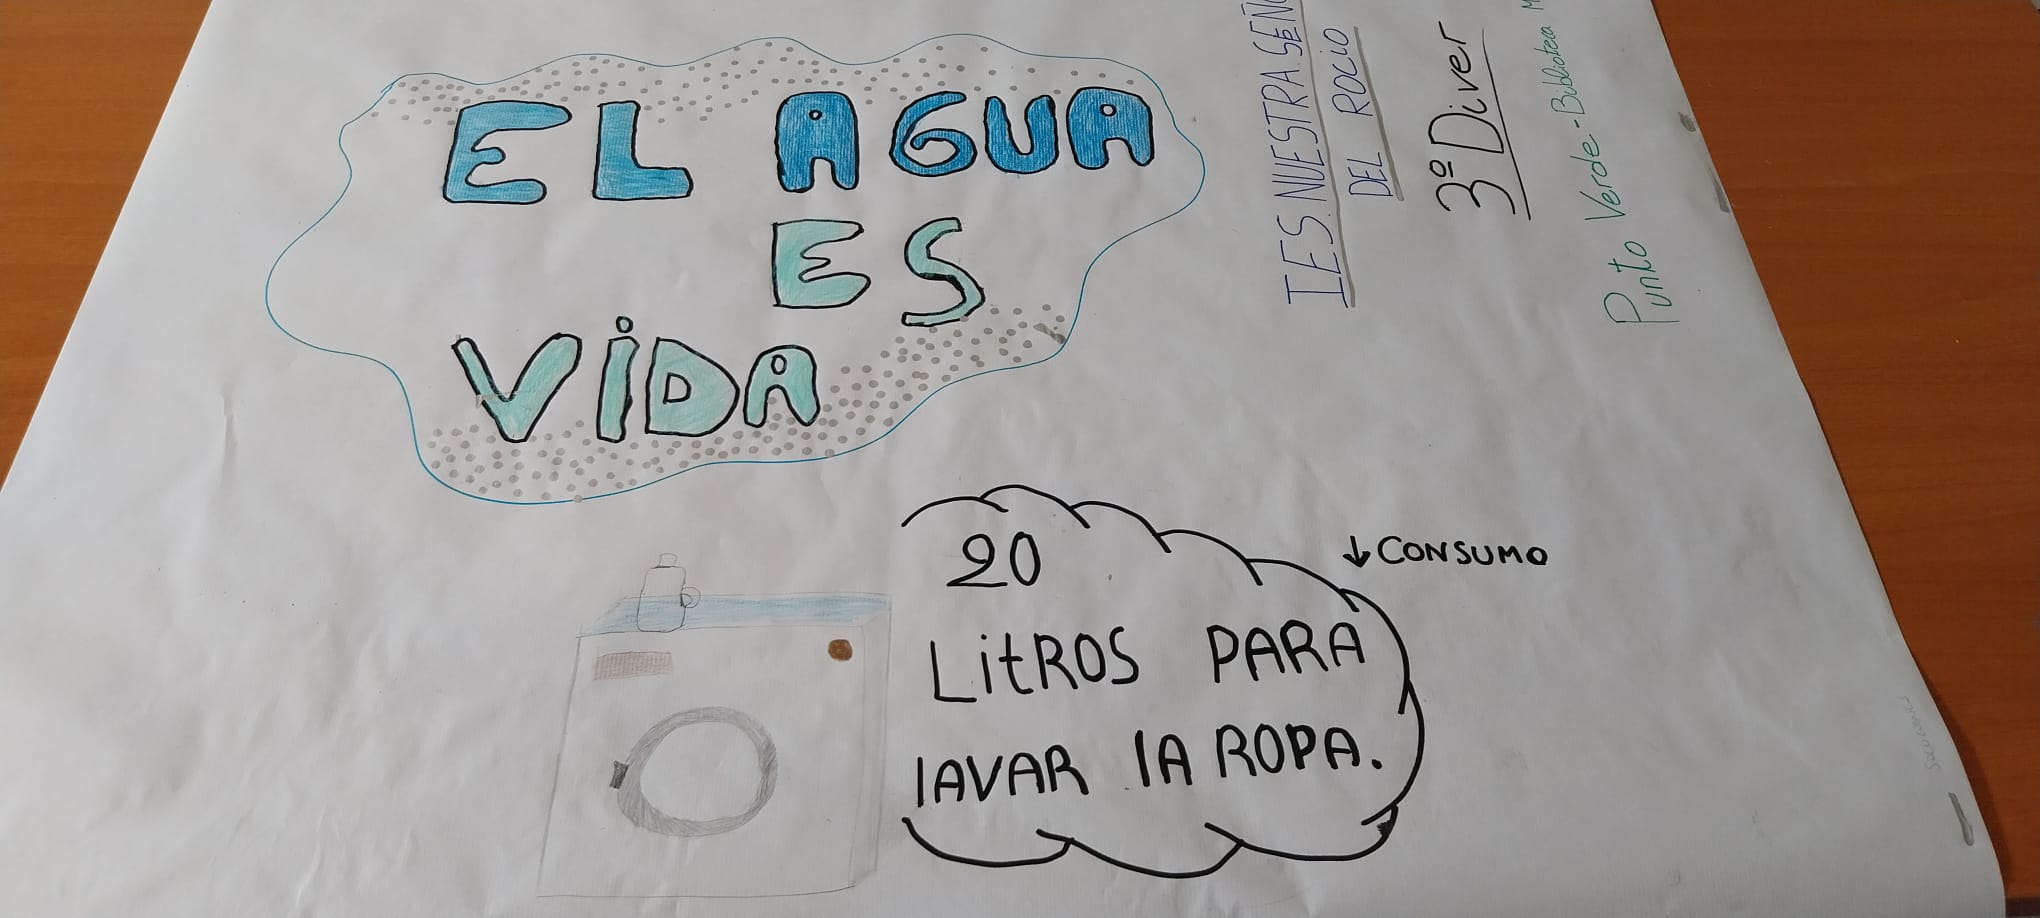 EL AGUA
ES
VIDA
I.E.S. NUESTRA SEÑ
DEL ROCIO
3º Diver
Punto Verde - Biblioteca M
↓ CONSUMO
20
LitROS PARA
lAVAR lA ROPA.